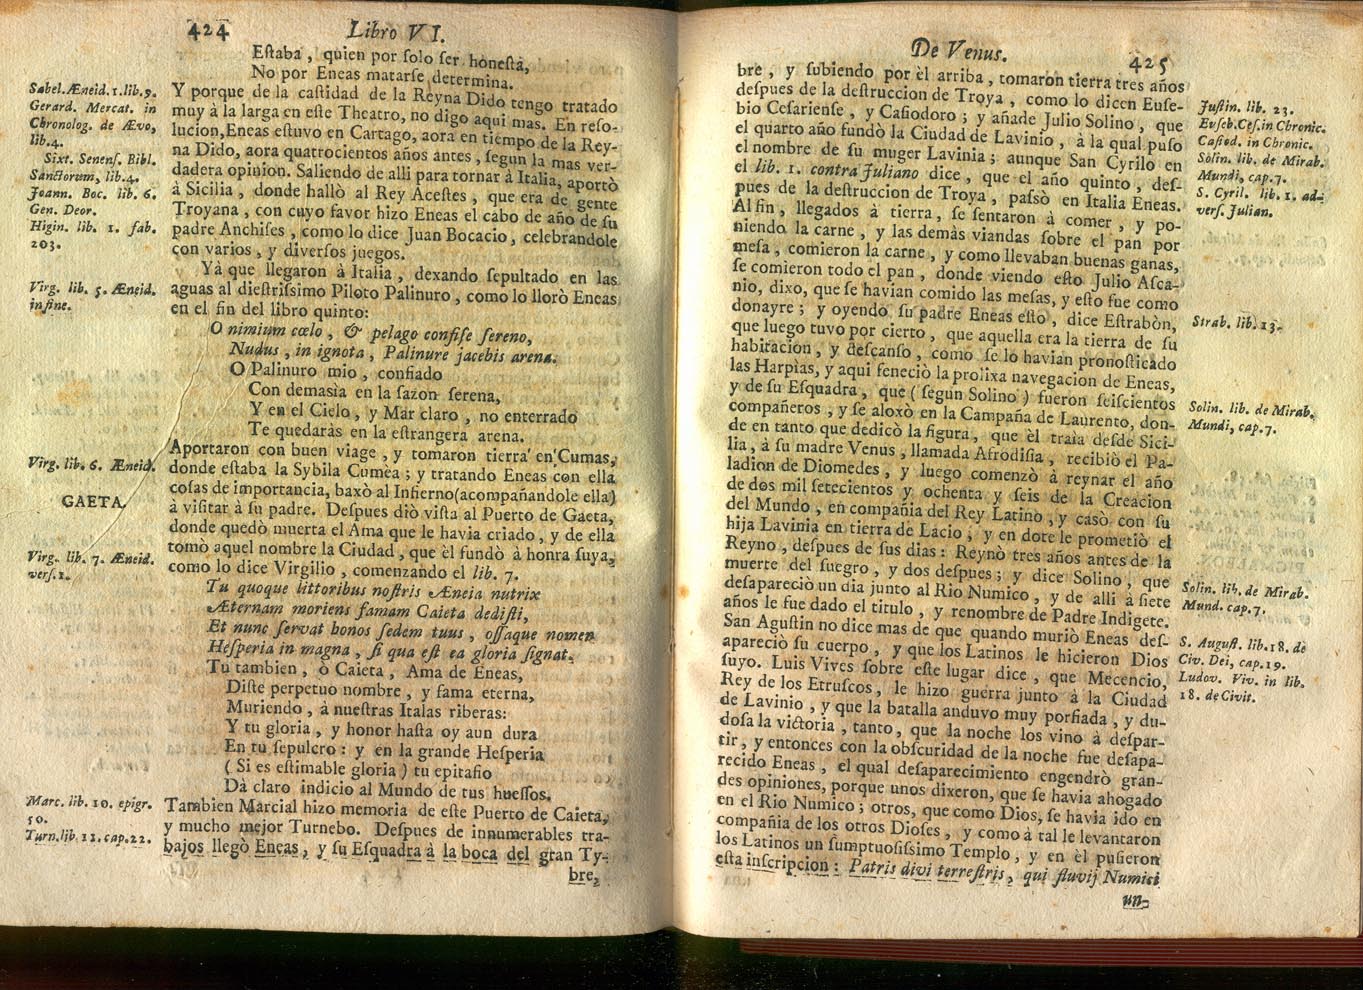 424
Libro VI.
Eſtaba, quien por ſolo ſer honeſta,
No por Eneas matarſe determina.
Y porque de la caſtidad de la Reyna Dido tengo tratado
muy à la larga en eſte Theatro, no digo aqui mas. En reſo-
lucion, Eneas eſtuvo en Cartago, aora en tiempo de la Rey-
na Dido, aora quatrocientos años antes, ſegun la mas ver-
dadera opinion. Saliendo de alli para tornar à Italia, aportò
à Sicilia, donde hallò al Rey Aceſtes, que era de gente
Troyana, con cuyo favor hizo Eneas el cabo de año de ſu
padre Anchiſes, como lo dice Juan Bocacio, celebrandole
con varios, y diverſos juegos.
Yà que llegaron à Italia, dexando ſepultado en las
aguas al dieſtriſsimo Piloto Palinuro, como lo llorò Eneas
en el fin del libro quinto:
O nimium cœlo, & pelago confiſe ſereno,
Nudus, in ignota, Palinure jacebis arena.
O Palinuro mio, confiado
Con demasìa en la ſazon ſerena,
Y en el Cielo, y Mar claro, no enterrado
Te quedaràs en la eſtrangera arena.
Aportaron con buen viage, y tomaron tierra en Cumas,
donde eſtaba la Sybila Cumèa; y tratando Eneas con ella
coſas de importancia, baxò al Infierno (acompañandole ella)
à viſitar à ſu padre. Deſpues diò viſta al Puerto de Gaeta,
donde quedò muerta el Ama que le havia criado, y de ella
tomò aquel nombre la Ciudad, que èl fundò à honra ſuya,
como lo dice Virgilio, comenzando el lib. 7.
Tu quoque littoribus noſtris Æneia nutrix
Æternam moriens famam Caieta dediſti,
Et nunc ſervat honos ſedem tuus, oſſaque nomen
Heſperia in magna, ſi qua eſt ea gloria ſignat.
Tu tambien, ò Caieta, Ama de Eneas,
Diſte perpetuo nombre, y fama eterna,
Muriendo, à nueſtras Italas riberas:
Y tu gloria, y honor haſta oy aun dura
En tu ſepulcro: y en la grande Heſperia
(Si es eſtimable gloria) tu epitafio
Dà claro indicio al Mundo de tus hueſſos.
Tambien Marcial hizo memoria de eſte Puerto de Caieta,
y mucho mejor Turnebo. Deſpues de innumerables tra-
bajos llegò Eneas, y ſu Eſquadra à la boca del gran Ty-
bre,
Sabel. Æneid. 1. lib. 9.
Gerard. Mercat. in
Chronolog. de Ævo,
lib. 4.
Sixt. Senenſ. Bibl.
Sanctorum, lib. 4.
Joann. Boc. lib. 6.
Gen. Deor.
Higin. lib. 1. fab.
203.
Virg. lib. 5. Æneid.
in fine.
Virg. lib. 6. Æneid.
GAETA.
Virg. lib. 7. Æneid.
verſ. 1.
Marc. lib. 10. epigr.
50.
Turn. lib. 11. cap. 22.
De Venus.
425
bre, y ſubiendo por èl arriba, tomaron tierra tres años
deſpues de la deſtruccion de Troya, como lo dicen Euſe-
bio Ceſarienſe, y Caſiodoro; y añade Julio Solino, que
el quarto año fundò la Ciudad de Lavinio, à la qual puſo
el nombre de ſu muger Lavinia; aunque San Cyrilo en
el lib. 1. contra Juliano dice, que el año quinto, deſ-
pues de la deſtruccion de Troya, paſsò en Italia Eneas.
Al fin, llegados à tierra, ſe ſentaron à comer, y po-
niendo la carne, y las demàs viandas ſobre el pan por
meſa, comieron la carne, y como llevaban buenas ganas,
ſe comieron todo el pan, donde viendo eſto Julio Aſca-
nio, dixo, que ſe havian comido las meſas, y eſto fue como
donayre; y oyendo ſu padre Eneas eſto, dice Eſtrabòn,
que luego tuvo por cierto, que aquella era la tierra de ſu
habitacion, y deſcanſo, como ſe lo havian pronoſticado
las Harpìas, y aqui feneciò la prolixa navegacion de Eneas,
y de ſu Eſquadra, que (ſegun Solino) fueron ſeiſcientos
compañeros, y ſe aloxò en la Campaña de Laurento, don-
de en tanto que dedicò la figura, que èl traìa deſde Sici-
lia, à ſu madre Venus, llamada Afrodiſia, recibiò el Pa-
ladion de Diomedes, y luego comenzò à reynar el año
de dos mil ſetecientos y ochenta y ſeis de la Creacion
del Mundo, en compañia del Rey Latino, y casò con ſu
hija Lavinia en tierra de Lacio, y en dote le prometiò el
Reyno, deſpues de ſus dias: Reynò tres años antes de la
muerte del ſuegro, y dos deſpues; y dice Solino, que
deſapareciò un dia junto al Rio Numico, y de alli à ſiete
años le fue dado el titulo, y renombre de Padre Indigete.
San Aguſtin no dice mas de que quando muriò Eneas deſ-
apareciò ſu cuerpo, y que los Latinos le hicieron Dios
ſuyo. Luis Vives ſobre eſte lugar dice, que Mecencio,
Rey de los Etruſcos, le hizo guerra junto à la Ciudad
de Lavinio, y que la batalla anduvo muy porfiada, y du-
doſa la victoria, tanto, que la noche los vino à deſpar-
tir, y entonces con la obſcuridad de la noche fue deſapa-
recido Eneas, el qual deſaparecimiento engendrò gran-
des opiniones, porque unos dixeron, que ſe havia ahogado
en el Rio Numico; otros, que como Dios, ſe havia ido en
compañia de los otros Dioſes, y como à tal le levantaron
los Latinos un ſumptuoſiſsimo Templo, y en èl puſieron
eſta inſcripcion: Patris divi terreſtris, qui fluvij Numici
un-
Juſtin. lib. 23.
Euſeb. Ceſ. in Chronic.
Caſiod. in Chronic.
Solin. lib. de Mirab.
Mundi, cap. 7.
S. Cyril. lib. 1. ad-
verſ. Julian.
Strab. lib. 13.
Solin. lib. de Mirab.
Mundi, cap. 7.
Solin. lib. de Mirab.
Mund. cap. 7.
S. Auguſt. lib. 18. de
Civ. Dei, cap. 19.
Ludov. Viv. in lib.
18. de Civit.